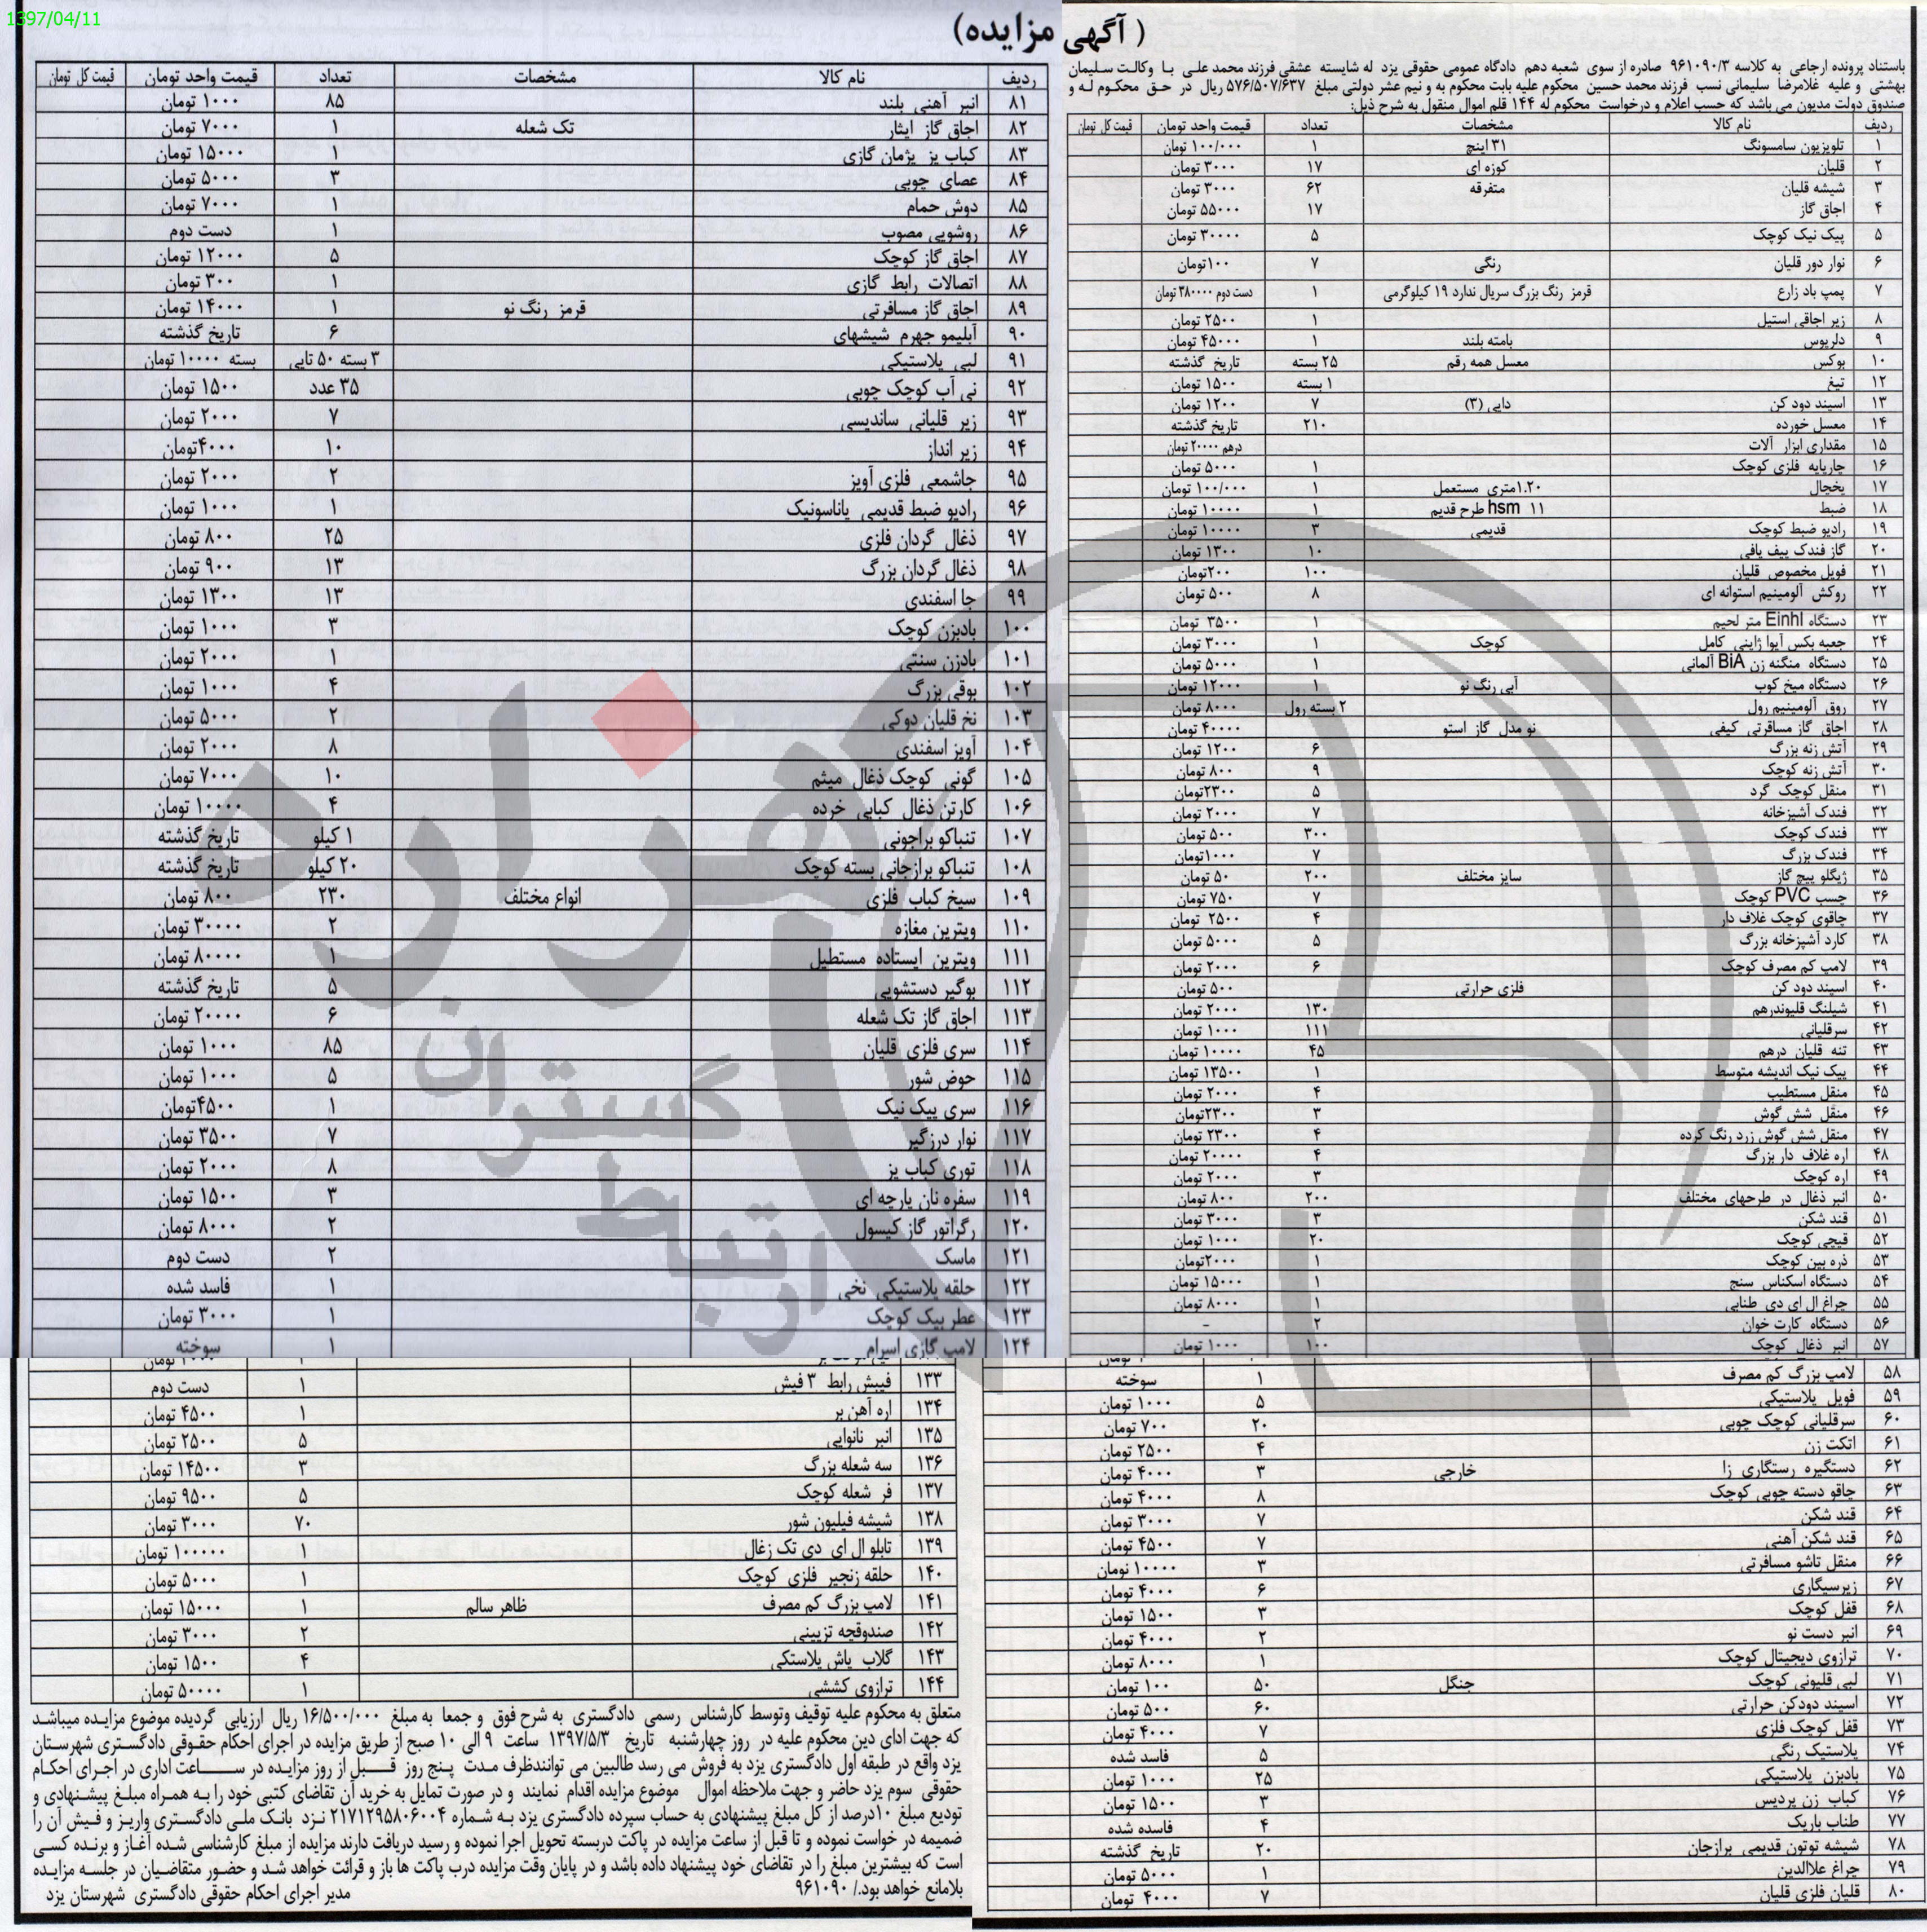 1397/04/11
( آگهی مزایده)
باستناد پرونده ارجاعی به کلاسه ۹۶۱۰۹۰/۳ صادره از سوی شعبه دهم دادگاه عمومی حقوقی یزد له شایسته عشقی فرزند محمد علی با وکالت سلیمان
بهشتی و علیه غلامرضا سلیمانی نسب فرزند محمد حسین محکوم علیه بابت محکوم به و نیم عشر دولتی مبلغ ۵۷۶/۵۰۷/۶۳۷ ریال در حق محکوم له و
صندوق دولت مدیون می باشد که حسب اعلام و درخواست محکوم له ۱۴۴ قلم اموال منقول به شرح ذیل:
ردیف نام کالا مشخصات تعداد قیمت واحد تومان قیمت کل تومان
۱ تلویزیون سامسونگ ۳۱ اینچ ۱ ۱۰۰/۰۰۰ تومان
۲ قلیان کوزه ای ۱۷ ۳۰۰۰ تومان
۳ شیشه قلیان متفرقه ۶۲ ۳۰۰۰ تومان
۴ اجاق گاز ۱۷ ۵۵۰۰۰ تومان
۵ پیک نیک کوچک ۵ ۳۰۰۰۰ تومان
۶ نوار دور قلیان رنگی ۷ ۱۰۰تومان
۷ پمپ باد زارع قرمز رنگ بزرگ سریال ندارد ۱۹ کیلوگرمی ۱ دست دوم ۳۸۰۰۰۰ تومان
۸ زیر اجاقی استیل ۱ ۲۵۰۰ تومان
۹ دلرپوس بامته بلند ۱ ۴۵۰۰۰ تومان
۱۰ بوکس معسل همه رقم ۲۵ بسته تاریخ گذشته
۱۲ تیغ ۱ بسته ۱۵۰۰ تومان
۱۳ اسپند دود کن دایی (۳) ۷ ۱۲۰۰ تومان
۱۴ معسل خورده ۲۱۰ تاریخ گذشته
۱۵ مقداری ابزار آلات درهم ۲۰۰۰۰ تومان
۱۶ چارپایه فلزی کوچک ۱ ۵۰۰۰ تومان
۱۷ یخچال ۱.۲۰متری مستعمل ۱ ۱۰۰/۰۰۰ تومان
۱۸ ضبط ۱۱ hsm طرح قدیم ۱ ۱۰۰۰۰ تومان
۱۹ رادیو ضبط کوچک قدیمی ۳ ۱۰۰۰۰ تومان
۲۰ گاز فندک پیف پافی ۱۰ ۱۳۰۰ تومان
۲۱ فویل مخصوص قلیان ۱۰۰ ۲۰۰تومان
۲۲ روکش آلومینیم استوانه ای ۸ ۵۰۰ تومان
۲۳ دستگاه Einhl متر لحیم ۱ ۳۵۰۰ تومان
۲۴ جعبه بکس آیوا ژاپنی کامل کوچک ۱ ۳۰۰۰ تومان
۲۵ دستگاه منگنه زن BiA آلمانی ۱ ۵۰۰۰ تومان
۲۶ دستگاه میخ کوب آبی رنگ نو ۱ ۱۲۰۰۰ تومان
۲۷ روق آلومینیم رول ۲ بسته رول ۸۰۰۰ تومان
۲۸ اجاق گاز مسافرتی کیفی نو مدل گاز استو ۴۰۰۰۰ تومان
۲۹ آتش زنه بزرگ ۶ ۱۲۰۰ تومان
۳۰ آتش زنه کوچک ۹ ۸۰۰ تومان
۳۱ منقل کوچک گرد ۵ ۲۳۰۰تومان
۳۲ فندک آشپزخانه ۷ ۲۰۰۰ تومان
۳۳ فندک کوچک ۳۰۰ ۵۰۰ تومان
۳۴ فندک بزرگ ۷ ۱۰۰۰تومان
۳۵ ژیگلو پیچ گاز سایز مختلف ۲۰۰ ۵۰ تومان
۳۶ چسب PVC کوچک ۷ ۷۵۰ تومان
۳۷ چاقوی کوچک غلاف دار ۴ ۲۵۰۰ تومان
۳۸ کارد آشپزخانه بزرگ ۵ ۵۰۰۰ تومان
۳۹ لامپ کم مصرف کوچک ۶ ۲۰۰۰ تومان
۴۰ اسپند دود کن فلزی حرارتی ۵۰۰ تومان
۴۱ شیلنگ قلیوندرهم ۱۳۰ ۲۰۰۰ تومان
۴۲ سرقلیانی ۱۱۱ ۱۰۰۰ تومان
۴۳ تنه قلیان درهم ۴۵ ۱۰۰۰۰ تومان
۴۴ پیک نیک اندیشه متوسط ۱ ۱۳۵۰۰ تومان
۴۵ منقل مستطیب ۴ ۲۰۰۰ تومان
۴۶ منقل شش گوش ۳ ۲۳۰۰تومان
۴۷ منقل شش گوش زرد رنگ کرده ۴ ۲۳۰۰ تومان
۴۸ اره غلاف دار بزرگ ۴ ۲۰۰۰۰ تومان
۴۹ اره کوچک ۳ ۲۰۰۰ تومان
۵۰ انبر ذغال در طرحهای مختلف ۲۰۰ ۸۰۰ تومان
۵۱ قند شکن ۳ ۳۰۰۰ تومان
۵۲ قیچی کوچک ۲۰ ۱۰۰۰ تومان
۵۳ ذره بین کوچک ۱ ۲۰۰۰تومان
۵۴ دستگاه اسکناس سنج ۱ ۱۵۰۰۰ تومان
۵۵ چراغ ال ای دی طنابی ۱ ۸۰۰۰ تومان
۵۶ دستگاه کارت خوان ۲ -
۵۷ انبر ذغال کوچک ۱۰۰ ۱۰۰۰ تومان
۵۸ لامپ بزرگ کم مصرف ۱ سوخته
۵۹ فویل پلاستیکی ۵ ۱۰۰۰ تومان
۶۰ سرقلیانی کوچک چوبی ۲۰ ۷۰۰ تومان
۶۱ اتکت زن ۴ ۲۵۰۰ تومان
۶۲ دستگیره رستگاری زا خارجی ۳ ۴۰۰۰ تومان
۶۳ چاقو دسته چوبی کوچک ۸ ۴۰۰۰ تومان
۶۴ قند شکن ۷ ۳۰۰۰ تومان
۶۵ قند شکن آهنی ۷ ۴۵۰۰ تومان
۶۶ منقل تاشو مسافرتی ۳ ۱۰۰۰۰ تومان
۶۷ زیرسیگاری ۶ ۴۰۰۰ تومان
۶۸ قفل کوچک ۳ ۱۵۰۰ تومان
۶۹ انبر دست نو ۲ ۴۰۰۰ تومان
۷۰ ترازوی دیجیتال کوچک ۱ ۸۰۰۰ تومان
۷۱ لبی قلیونی کوچک جنگل ۵۰ ۱۰۰ تومان
۷۲ اسپند دودکن حرارتی ۶۰ ۵۰۰ تومان
۷۳ قفل کوچک فلزی ۷ ۴۰۰۰ تومان
۷۴ پلاستیک رنگی ۵ فاسد شده
۷۵ بادبزن پلاستیکی ۲۵ ۱۰۰۰ تومان
۷۶ کباب زن پردیس ۳ ۱۵۰۰ تومان
۷۷ طناب باریک ۴ فاسده شده
۷۸ شیشه توتون قدیمی برازجان ۲۰ تاریخ گذشته
۷۹ چراغ علاالدین ۱ ۵۰۰۰ تومان
۸۰ قلیان فلزی قلیان ۷ ۴۰۰۰ تومان
ردیف نام کالا مشخصات تعداد قیمت واحد تومان قیمت کل تومان
۸۱ انبر آهنی بلند ۸۵ ۱۰۰۰ تومان
۸۲ اجاق گاز ایثار تک شعله ۱ ۷۰۰۰ تومان
۸۳ کباب پز پژمان گازی ۱ ۱۵۰۰۰ تومان
۸۴ عصای چوبی ۳ ۵۰۰۰ تومان
۸۵ دوش حمام ۱ ۷۰۰۰ تومان
۸۶ روشویی مصوب ۱ دست دوم
۸۷ اجاق گاز کوچک ۵ ۱۲۰۰۰ تومان
۸۸ اتصالات رابط گازی ۱ ۳۰۰ تومان
۸۹ اجاق گاز مسافرتی قرمز رنگ نو ۱ ۱۴۰۰۰ تومان
۹۰ آبلیمو جهرم شیشهای ۶ تاریخ گذشته
۹۱ لبی پلاستیکی ۳ بسته ۵۰ تایی بسته ۱۰۰۰۰ تومان
۹۲ نی آب کوچک چوبی ۳۵ عدد ۱۵۰۰ تومان
۹۳ زیر قلیانی ساندیسی ۷ ۲۰۰۰ تومان
۹۴ زیر انداز ۱۰ ۴۰۰۰تومان
۹۵ جاشمعی فلزی آویز ۲ ۲۰۰۰ تومان
۹۶ رادیو ضبط قدیمی پاناسونیک ۱ ۱۰۰۰ تومان
۹۷ ذغال گردان فلزی ۲۵ ۸۰۰ تومان
۹۸ ذغال گردان بزرگ ۱۳ ۹۰۰ تومان
۹۹ جا اسفندی ۱۳ ۱۳۰۰ تومان
۱۰۰ بادبزن کوچک ۳ ۱۰۰۰ تومان
۱۰۱ بادزن سنتی ۱ ۲۰۰۰ تومان
۱۰۲ بوقی بزرگ ۴ ۱۰۰۰ تومان
۱۰۳ نخ قلیان دوکی ۲ ۵۰۰۰ تومان
۱۰۴ آویز اسفندی ۸ ۲۰۰۰ تومان
۱۰۵ گونی کوچک ذغال میثم ۱۰ ۷۰۰۰ تومان
۱۰۶ کارتن ذغال کبابی خرده ۴ ۱۰۰۰۰ تومان
۱۰۷ تنباکو براجونی ۱ کیلو تاریخ گذشته
۱۰۸ تنباکو برازجانی بسته کوچک ۲۰ کیلو تاریخ گذشته
۱۰۹ سیخ کباب فلزی انواع مختلف ۲۳۰ ۸۰۰ تومان
۱۱۰ ویترین مغازه ۲ ۳۰۰۰۰ تومان
۱۱۱ ویترین ایستاده مستطیل ۱ ۸۰۰۰۰ تومان
۱۱۲ بوگیر دستشویی ۵ تاریخ گذشته
۱۱۳ اجاق گاز تک شعله ۶ ۲۰۰۰۰ تومان
۱۱۴ سری فلزی قلیان ۸۵ ۱۰۰۰ تومان
۱۱۵ حوض شور ۵ ۱۰۰۰ تومان
۱۱۶ سری پیک نیک ۱ ۴۵۰۰تومان
۱۱۷ نوار درزگیر ۷ ۳۵۰۰ تومان
۱۱۸ توری کباب پز ۸ ۲۰۰۰ تومان
۱۱۹ سفره نان پارچه ای ۳ ۱۵۰۰ تومان
۱۲۰ رگراتور گاز کپسول ۲ ۸۰۰۰ تومان
۱۲۱ ماسک ۲ دست دوم
۱۲۲ حلقه پلاستیکی نخی ۱ فاسد شده
۱۲۳ عطر پیک کوچک ۱ ۳۰۰۰ تومان
۱۲۴ لامپ گازی اسرام ۱ سوخته
۱۳۳ فیبش رابط ۳ فیش ۱ دست دوم
۱۳۴ اره آهن بر ۱ ۴۵۰۰ تومان
۱۳۵ انبر نانوایی ۵ ۲۵۰۰ تومان
۱۳۶ سه شعله بزرگ ۳ ۱۴۵۰۰ تومان
۱۳۷ فر شعله کوچک ۵ ۹۵۰۰ تومان
۱۳۸ شیشه فیلیون شور ۷۰ ۳۰۰۰ تومان
۱۳۹ تابلو ال ای دی تک زغال ۱ ۱۰۰۰۰۰ تومان
۱۴۰ حلقه زنجیر فلزی کوچک ۱ ۵۰۰۰ تومان
۱۴۱ لامپ بزرگ کم مصرف ظاهر سالم ۱ ۱۵۰۰۰ تومان
۱۴۲ صندوقچه تزیینی ۲ ۳۰۰۰ تومان
۱۴۳ گلاب پاش پلاستکی ۴ ۱۵۰۰ تومان
۱۴۴ ترازوی کششی ۱ ۵۰۰۰۰ تومان
متعلق به محکوم علیه توقیف وتوسط کارشناس رسمی دادگستری به شرح فوق و جمعا به مبلغ ۱۶/۵۰۰/۰۰۰ ریال ارزیابی گردیده موضوع مزایده میباشد
که جهت ادای دین محکوم علیه در روز چهارشنبه تاریخ ۱۳۹۷/۵/۳ ساعت ۹ الی ۱۰ صبح از طریق مزایده در اجرای احکام حقوقی دادگستری شهرستان
یزد واقع در طبقه اول دادگستری یزد به فروش می رسد طالبین می توانندظرف مدت پنج روز قبل از روز مزایده در ساعت اداری در اجرای احکام
حقوقی سوم یزد حاضر و جهت ملاحظه اموال موضوع مزایده اقدام نمایند و در صورت تمایل به خرید آن تقاضای کتبی خود را به همراه مبلغ پیشنهادی و
تودیع مبلغ ۱۰درصد از کل مبلغ پیشنهادی به حساب سپرده دادگستری یزد به شماره ۲۱۷۱۲۹۵۸۰۶۰۰۴ نزد بانک ملی دادگستری واریز و فیش آن را
ضمیمه در خواست نموده و تا قبل از ساعت مزایده در پاکت دربسته تحویل اجرا نموده و رسید دریافت دارند مزایده از مبلغ کارشناسی شده آغاز و برنده کسی
است که بیشترین مبلغ را در تقاضای خود پیشنهاد داده باشد و در پایان وقت مزایده درب پاکت ها باز و قرائت خواهد شد و حضور متقاضیان در جلسه مزایده
بلامانع خواهد بود./ ۹۶۱۰۹۰
مدیر اجرای احکام حقوقی دادگستری شهرستان یزد
هزاره
گستران
ارتباط